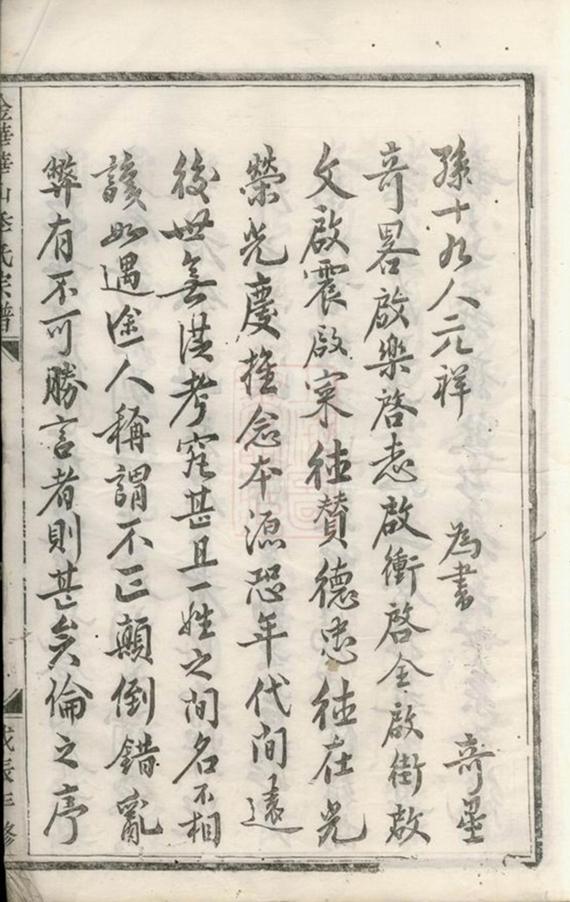 孫十九人元祥 為書 奇星
奇畧啟樂啓志啟衝啓全啟街啟
文啟震啟寀德贊德忠德在光
榮光慶推念本源恐年代間遠
後世無從考究甚且一姓之間名不相
諱如遇途人稱謂不正顛倒錯亂
弊有不可勝言者則甚矣倫之序
金華 山 氏宗譜
戊辰年修